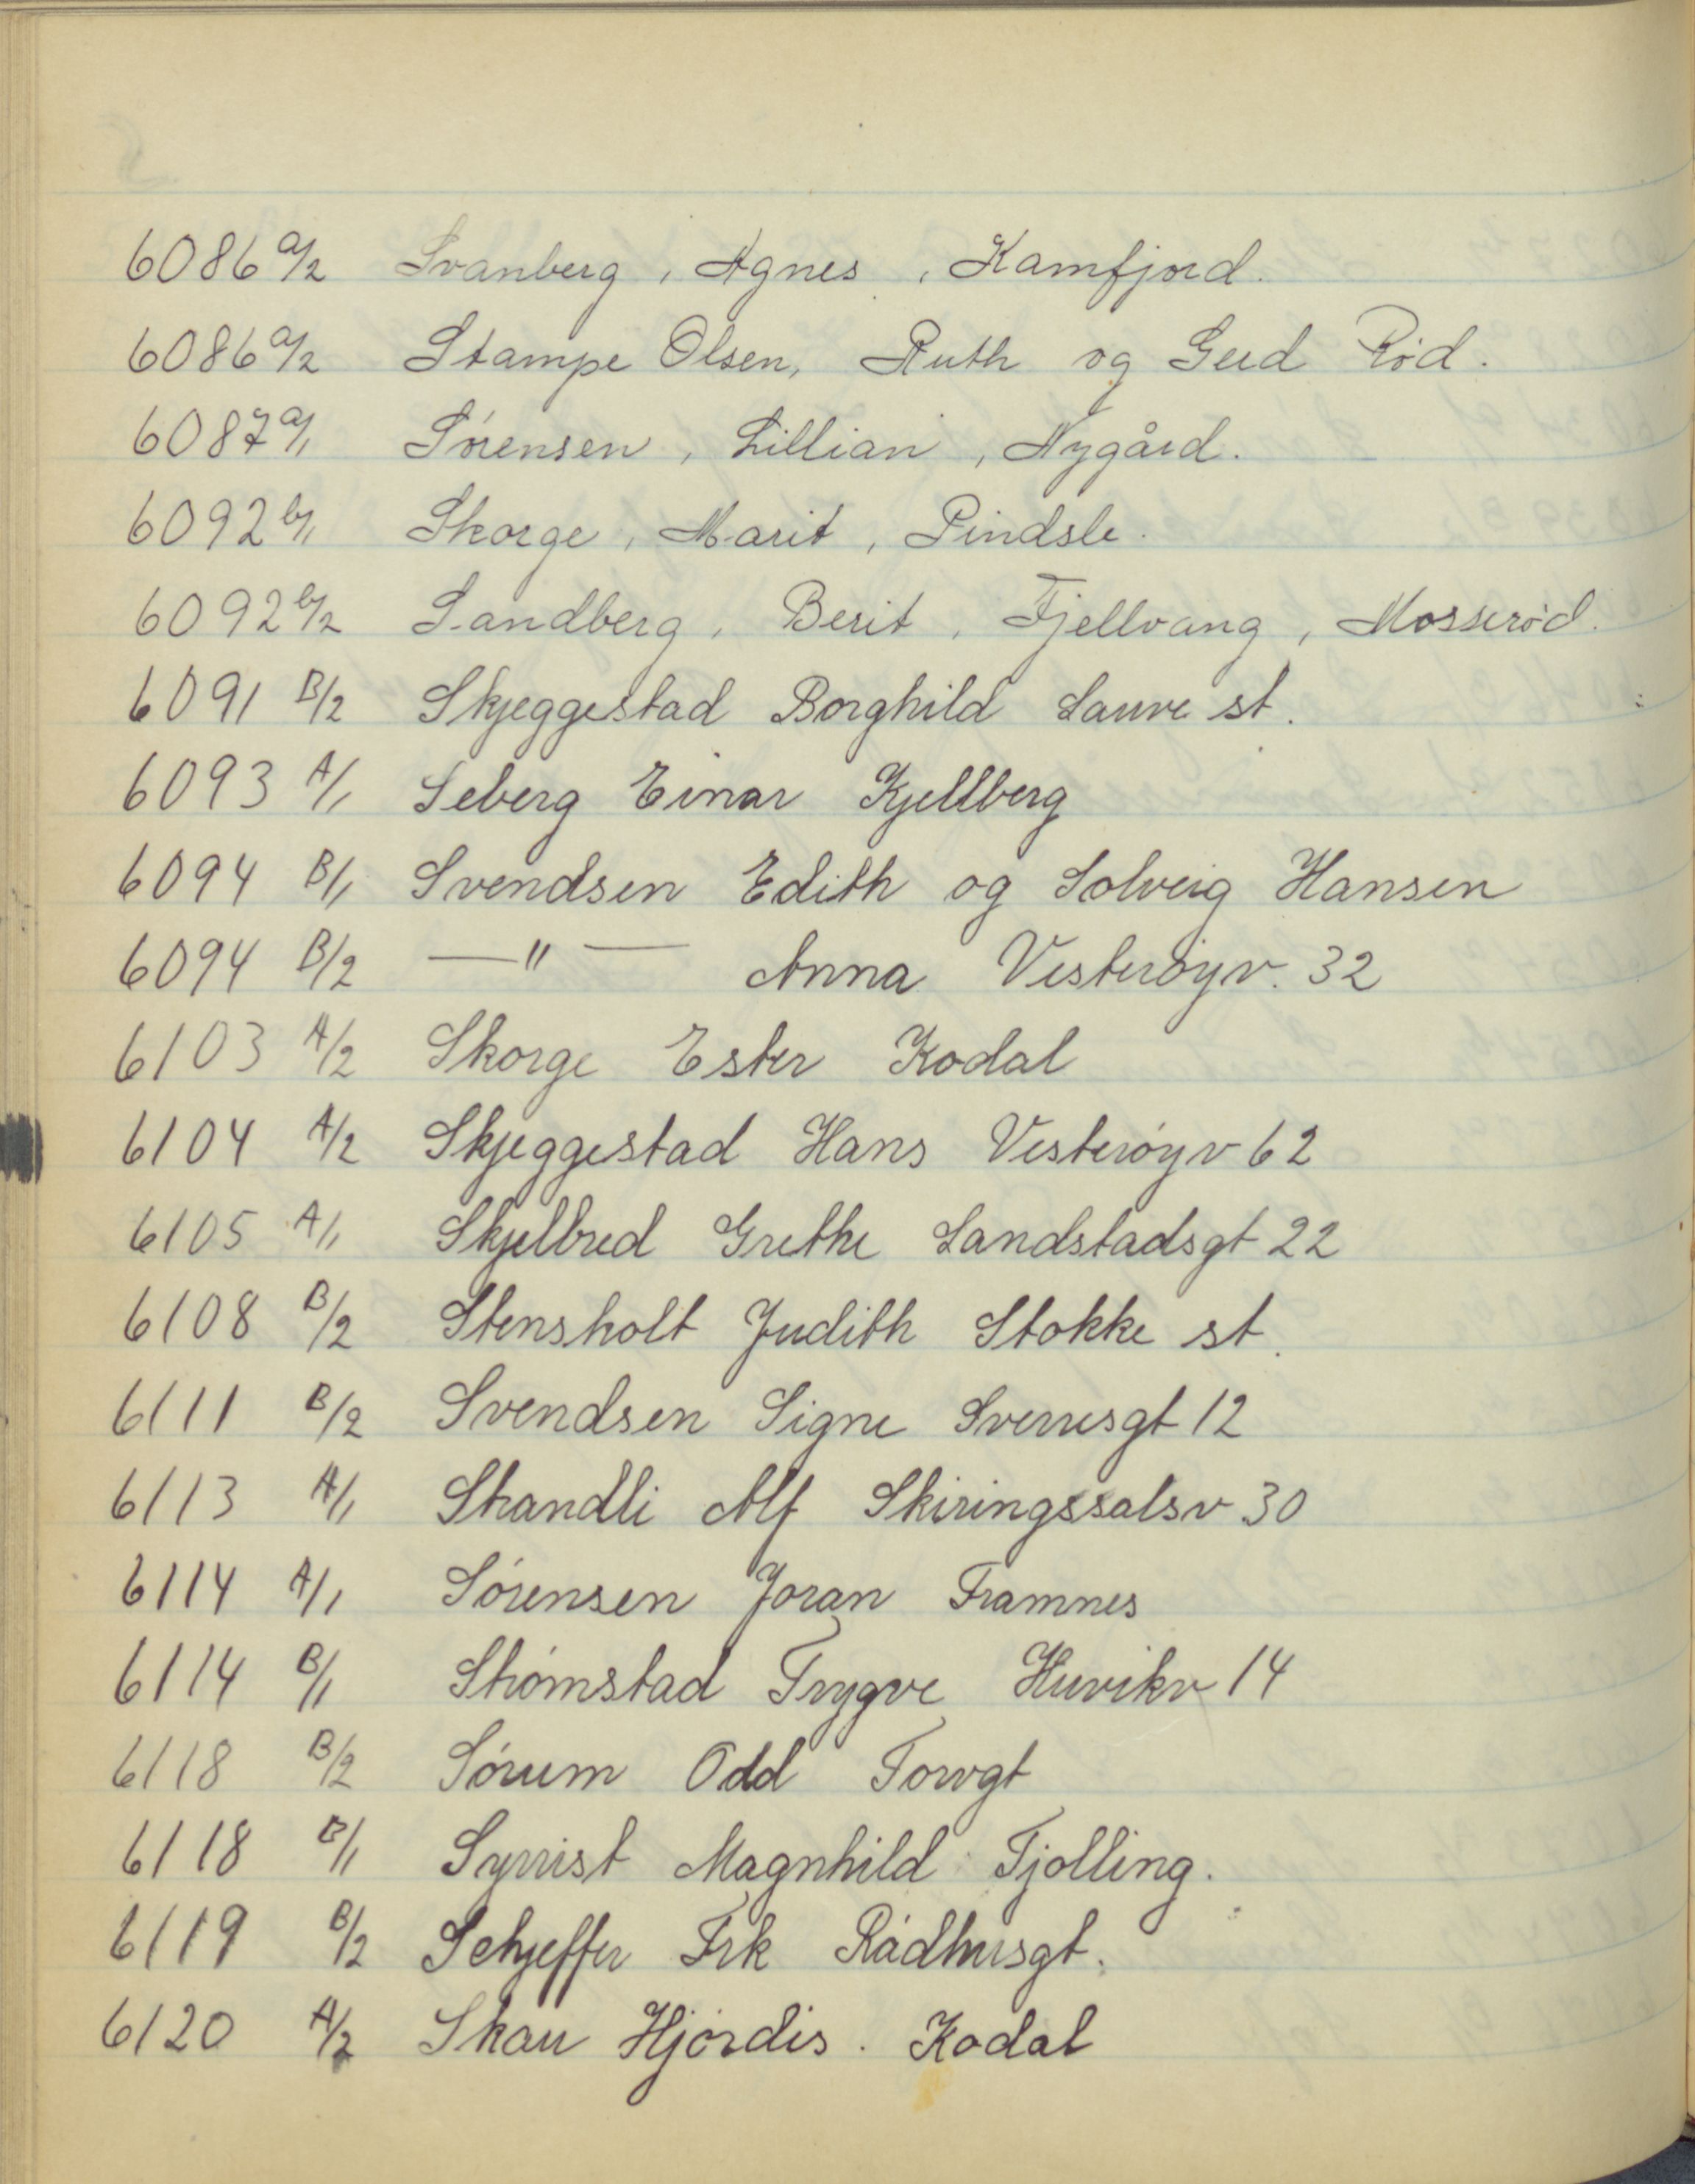 6086 a/2 Svanberg, Agnes, Kamfjord.
6086 a/2 Stampe Olsen, Ruth og Gerd Rød.
6087 a/1 Sørensen, Lillian, Nygård.
6092 b/1 Skorge, Marit, Pindsle.
6092 b/2 Sandberg, Berit, Fjellvang, Mosserød.
6091 B/2 Skjeggestad Borghild Sauve st.
6093 A/1 Seberg Einar Kjellberg
6094 B/1 Svendsen Edith og Solveig Hansen
6094 B/2 —"— Anna Vesterøyv. 32
6103 A/2 Skorge Ester Kodal
6104 A/2 Skjeggestad Hans Vesterøyv 62
6105 A/1 Skjelbred Grethe Landstadsgt 22
6108 B/2 Stensholt Judith Stokke st.
6111 B/2 Svendsen Signe Sverresgt 12
6113 A/1 Strandli Alf Skiringssalsv 30
6114 A/1 Sørensen Joran Framnes
6114 B/1 Strømstad Trygve Huvikv 14
6118 B/2 Sørum Odd Torvgt
6118 B/1 Syrrist Magnhild Tjølling.
6119 B/2 Schjeffer Frk Rådhusgt.
6120 A/2 Skau Hjørdis. Kodal